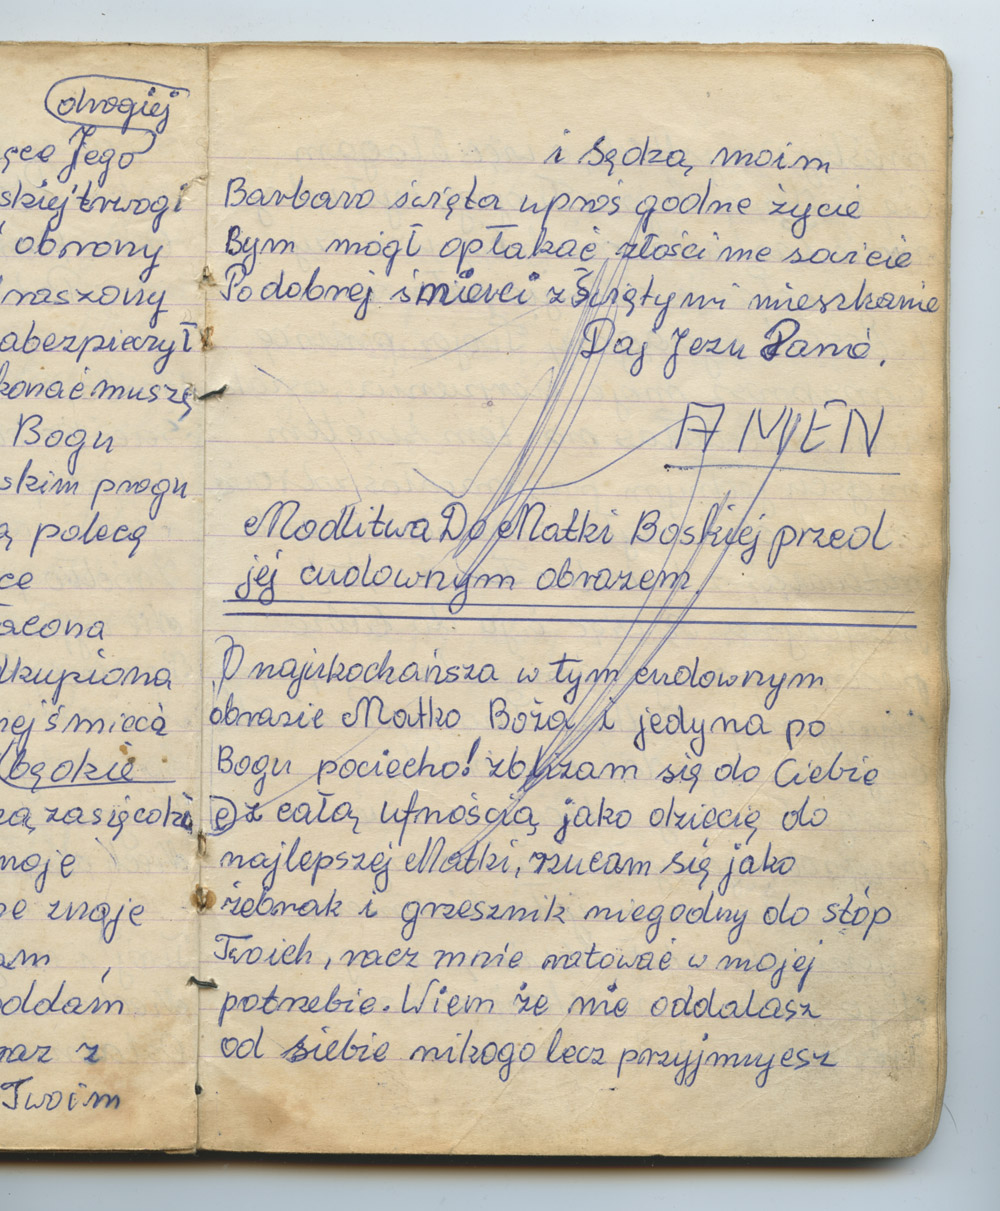 drogiej
Jego
trwogi
obrony
abezpieczył
konać muszę
Bogu
skim progu
polecą
ce
acona
kupiona
nej śmiecà
bądzie
zasięcoki
moje
znaję
am
oddám
raz z
Twoim
i sędzą moim
Barbaro święta uproś godne życie
Bym mógł opłakać złości me sowicie
Podobnej śmierci z Świętymi mieszkanie
Daj Jezu Panie.
AMEN
Modlitwa Do Matki Boskiej przed
jéj cudownym obrazem.
O najukochańsza w tym cudownym
obrazie Matko Boża i jedyna po
Bogu pociecho! zbliżam się do Ciebie
z całą ufnością jako dziecię do
najlepszéj Matki, rzucam się jako
żebrak i grzesznik niegodny do stóp
Twoich, racz mnie ratować w mojej
potrzebie. Wiem że nie oddalasz
od siebie nikogo lecz przyjmujesz